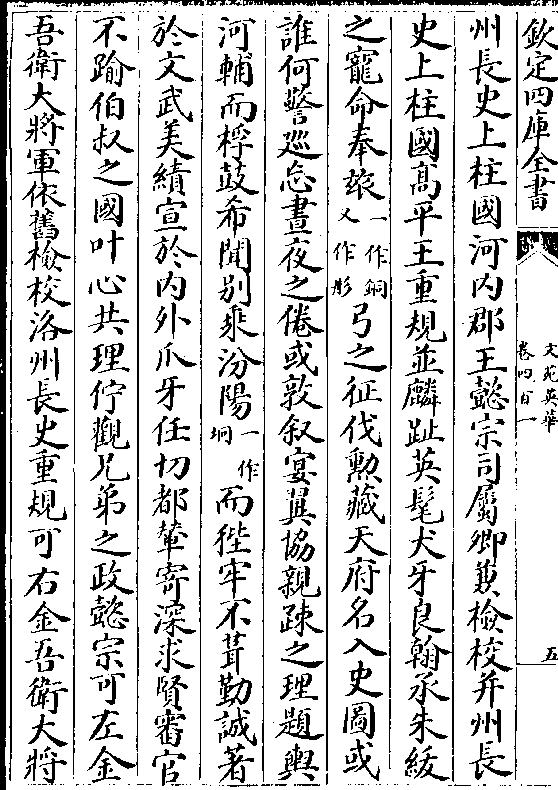 欽定四庫全書
文苑英華
卷四百一
五
州長史上柱國河内郡王懿宗司屬卿兼檢校并州長
史上柱國髙平王重規並麟趾英髦犬牙良翰承朱紱
之寵命奉旅一作鋼又作彤弓之征伐勲藏天府名入史圖或
誰何警巡忘晝夜之倦或敦叙宴翼協親疎之理題輿
河輔而桴鼓希聞别乘汾陽一作坰而狴牢不葺勤誠著
於文武美績宣於内外爪牙任切都輦寄深求賢審官
不踰伯叔之國叶心共理佇觀兄弟之政懿宗可左金
吾衛大將軍依舊檢校洛州長史重規可右金吾衛大將